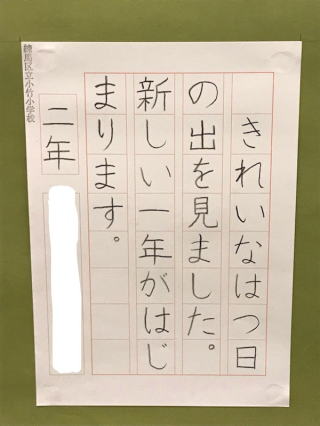 きれいなはつ日
の出を見ました。
新しい一年がはじ
まります。
二年
練馬区立小竹小学校